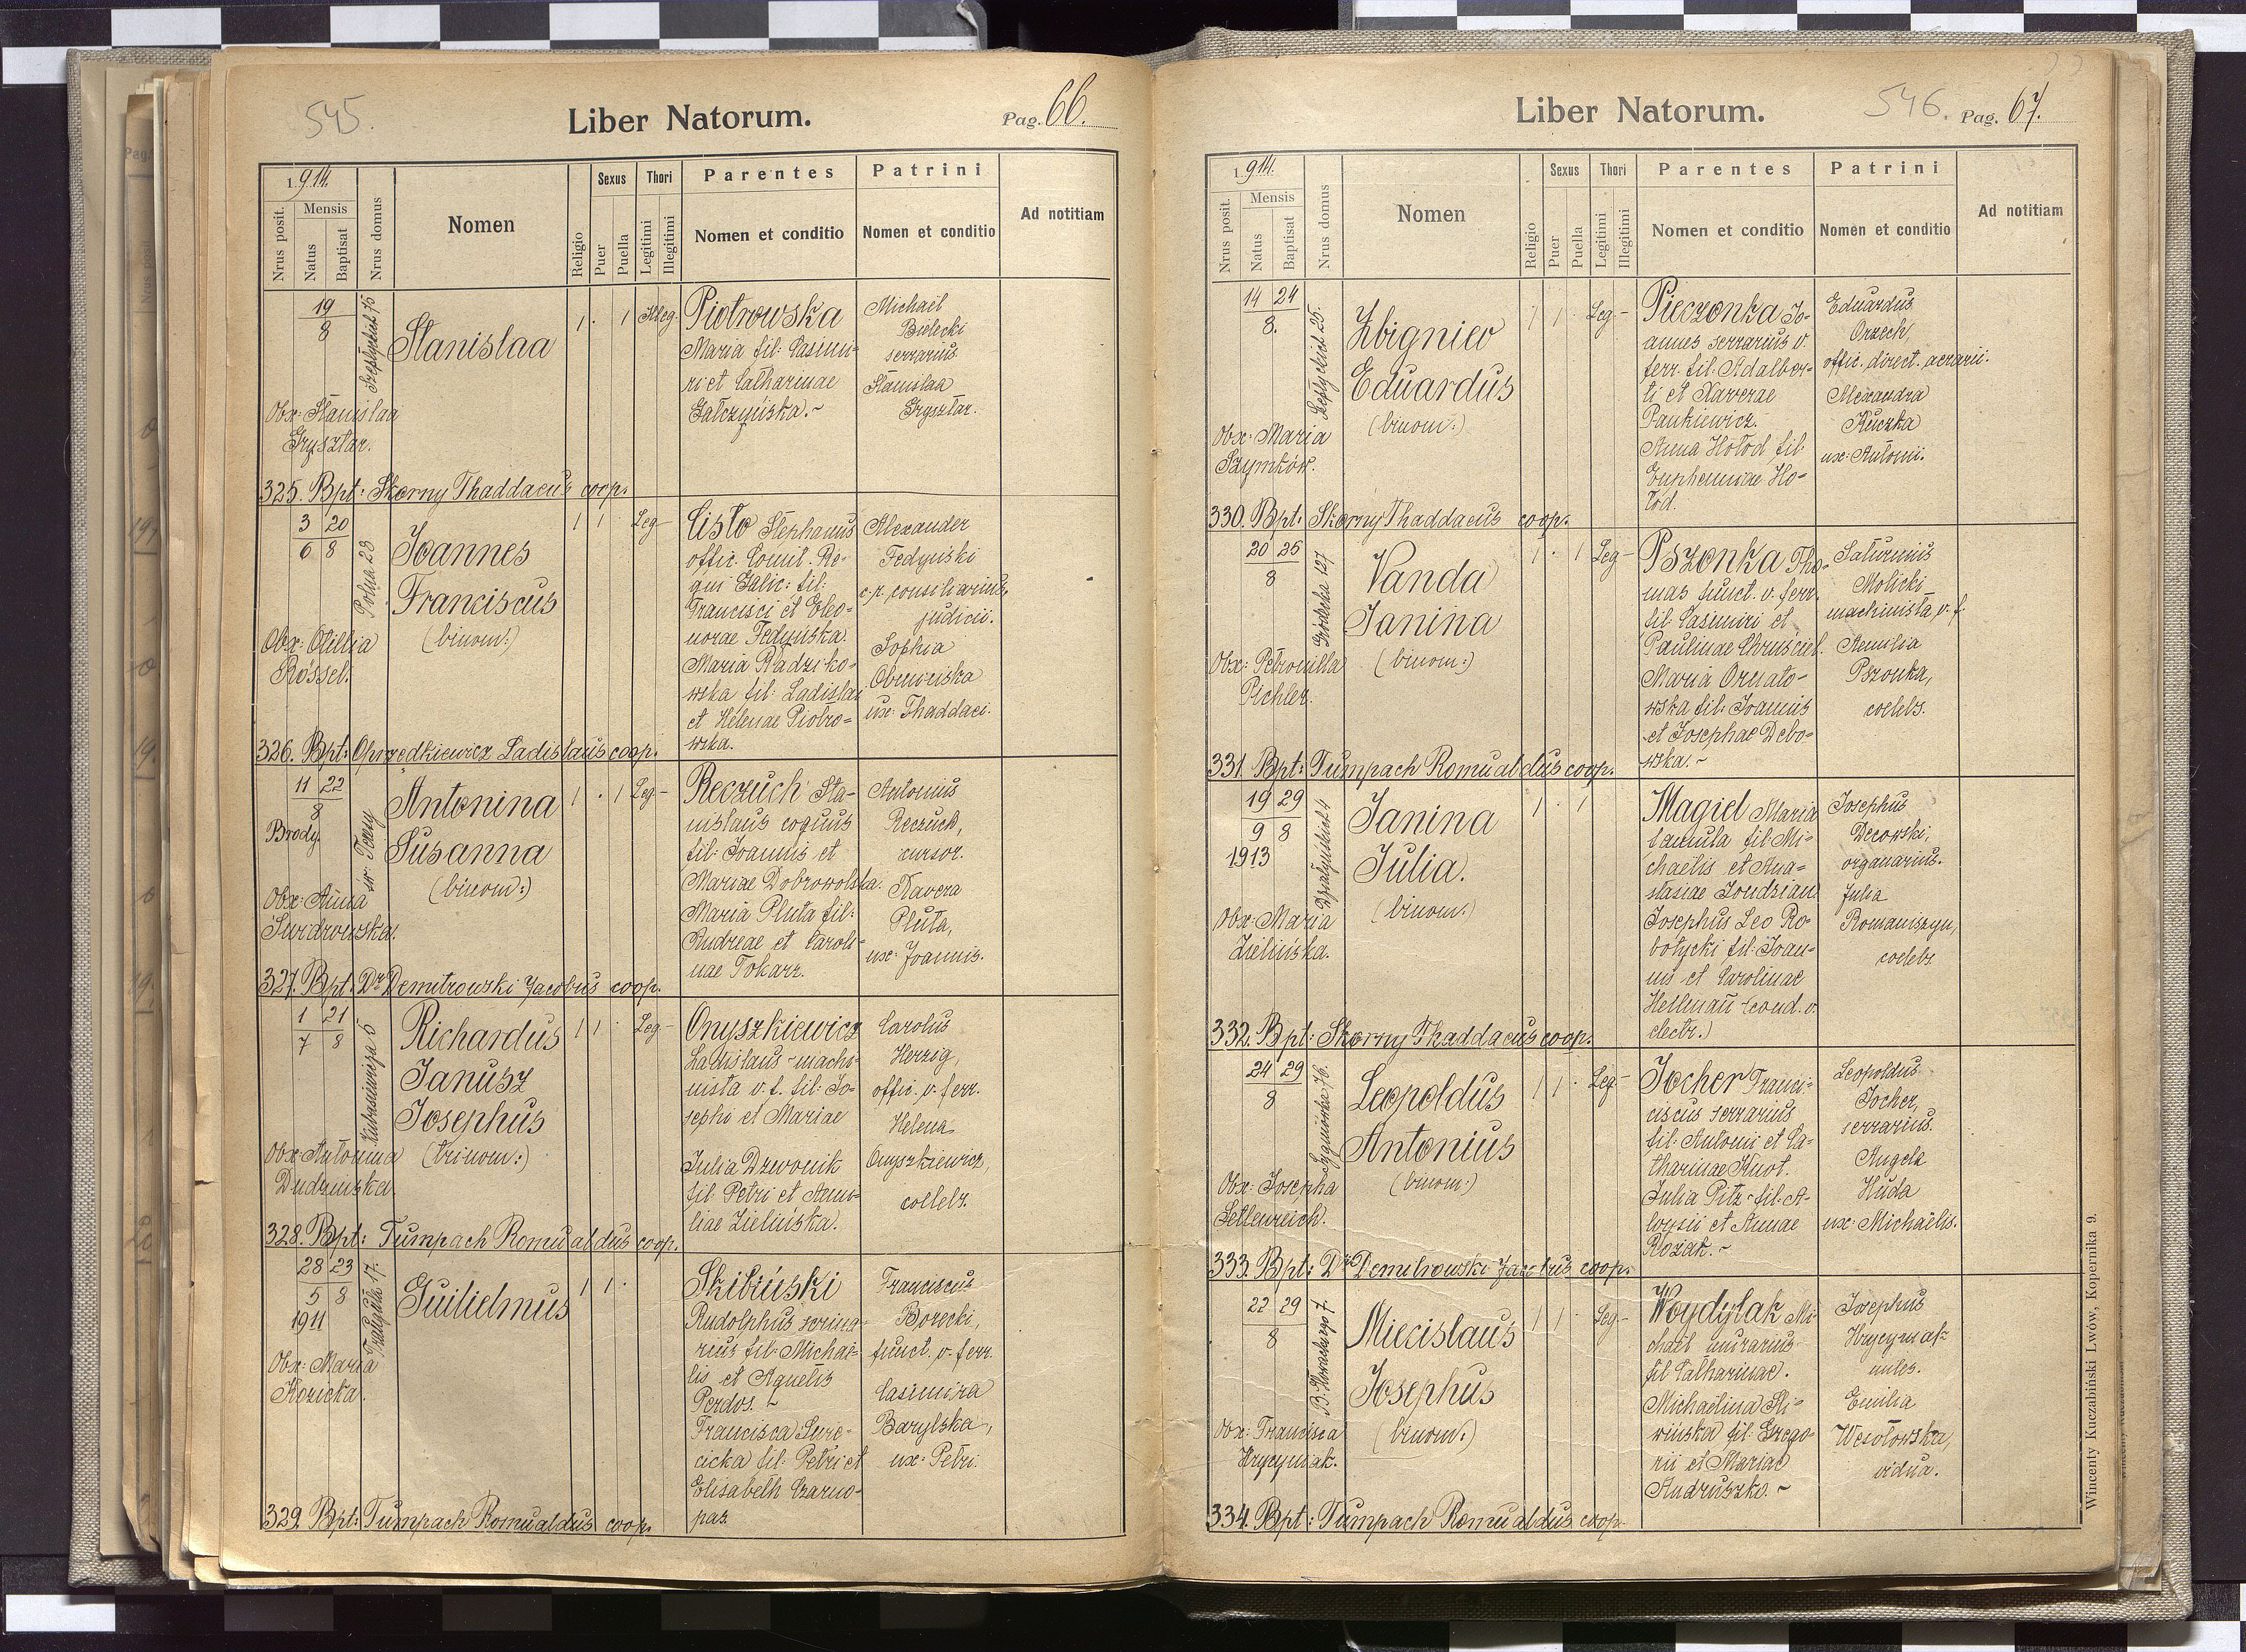 545.
Liber Natorum.
Pag. 66.
1914.
Nrus posit.
Mensis
Natus
Baptisat
Nrus domus
Nomen
Religio
Sexus
Puer
Puella
Thori
Legitimi
Illegitimi
Parentes
Nomen et conditio
Patrini
Nomen et conditio
Ad notitiam
19
8
Stanislaa
1 . 1 Illeg.
Piotrowska
Maria fil: Casimi-
ri et Catharinae
Gałczyńska.~
Michael
Bielecki
serrarius
Stanislaa
Grysztar.
Obx: Stanislaa
Grysztar.
325. Bpt: Skorny Thaddaeus coop.
3 20
6 8
Polna 23
Joannes
Franciscus
(binom:)
1 1 Leg-
Cisło Stephanus
offic. Comit. Re-
gni Galic: fil:
Francisci et Eleo-
norae Fedyńska.
Maria Radziko-
wska fil: Ladislai
et Helenae Piotro-
wska.
Alexander
Fedyński
c.r. consiliarius
judicii.
Sophia
Obmińska
ux: Thaddaei.
Obx: Otillia
Rössel.
326. Bpt: Ladislaus coop.
11 22
8
Brody.
Antonina
Susanna
(binom:)
1 . 1 Leg-
Reczuch Sta-
nislaus coquus
fil: Joannis et
Mariae Dobrowolska.
Maria Pluta fil:
Andreae et Caroli-
nae Tokarz.
Antonius
Reczuch,
cursor.
Xavera
Pluta,
ux: Joannis.
Obx: Anna
327. Bpt: Dr Demitrowski Jacobus coop.
1 21
7 8
Richardus
Janusz
Josephus
(trinom:)
1 1 . Leg-
Onyszkiewicz
Ladislaus - machi-
nista v. f. fil: Jo-
sephi et Mariae
Julia Dzwonik
fil: Petri et Aemi-
liae Zielińska.
Carolus
Herzig,
offic. v. ferr.
Helena
Onyszkiewicz,
coelebs.
Obx: Antonina
Dudzińska.
328. Bpt: Tumpach Romualdus coop.
28 23
5 8
1911
Guilielmus
1 1 .
Skibiński
Rudolphus scrina-
rius fil: Michaë-
lis et Agnetis
Perdos. ~
Francisca
cicka fil: Petri et
Elisabeth Czarno-
pas.
Franciscus
Borecki,
funct. v. ferr.
Casimira
Barylska,
ux: Petri.
Obx: Maria
Kozicka.
329. Bpt: Tumpach Romualdus coop.
546.
Liber Natorum.
Pag. 67.
1914.
Nrus posit.
Mensis
Natus
Baptisat
Nrus domus
Nomen
Religio
Sexus
Puer
Puella
Thori
Legitimi
Illegitimi
Parentes
Nomen et conditio
Patrini
Nomen et conditio
Ad notitiam
14 24
8.
Zbigniew
Eduardus
(binom:)
1 1 . Leg-
Pieczonka Jo-
annes serrarius v.
ferr. fil: Adalber-
ti et Xaverae
Pankiewicz.
Anna Hołod fil:
Euphemiae Ho-
łod.
Eduardus
Orzech,
offic. direct. aerarii.
Alexandra
Kuczka
ux: Antoni.
Obx: Maria
Szymków.
330. Bpt: Skorny Thaddaeus coop.
20 25
8
Gródecka 127
Vanda
Janina
(binom:)
1 . 1 Leg-
Pszonka Tho-
mas funct. v. ferr.
fil: Casimiri et
Paulinae Chruściel.
Maria Ornato-
wska fil: Joannis
et Josephae Debo-
wska.~
Saturnius
Molicki
machinista v. f.
Aemilia
Pszonka,
coelebs.
Obx: Petronilla
Pichler.
331. Bpt: Tumpach Romualdus coop.
19 29
9 8
1913
Działyńskich 4
Janina
Julia.
(binom:)
1 . 1
Magiel Maria
famula fil: Mi-
chaelis et Ana-
stasiae
Josephus Leo Ro-
botycki fil: Joan-
nis et Carolinae
Hellman (cond. v.
electr.)
Josephus
organarius.
Julia
Romaniszyn,
coelebs.
Obx: Maria
Zielińska.
332. Bpt: Skorny Thaddaeus coop.
24 29
8
Leopoldus
Antonius
(binom:)
1 1 . Leg-
Jocher Franci-
ciscus serrarius
fil: Antonii et Ca-
tharinae Knot.
Julia Pitz fil: A-
loysii et Annae
Rożak.~
Leopoldus
Jocher,
serrarius.
Angela
Huda
ux: Michaëlis.
Obx: Josepha
Setlenreich.
333. Bpt: Dr Demitrowski Jacobus coop.
22 29
8
Miecislaus
Josephus
(binom:)
1 1 . Leg-
Woydyłak Mi-
chaël murarius
fil: Catharinae.
Michaëlina
fil: Grego-
rii et Mariae
Andruszko.~
Josephus
Hrycyniak
miles.
Emilia
Wesołowska
vidua.
Obx: Francisca
Hrycyniak.
334. Bpt: Tumpach Romualdus coop.
Wincenty Kuczabiński Lwów, Kopernika 9.